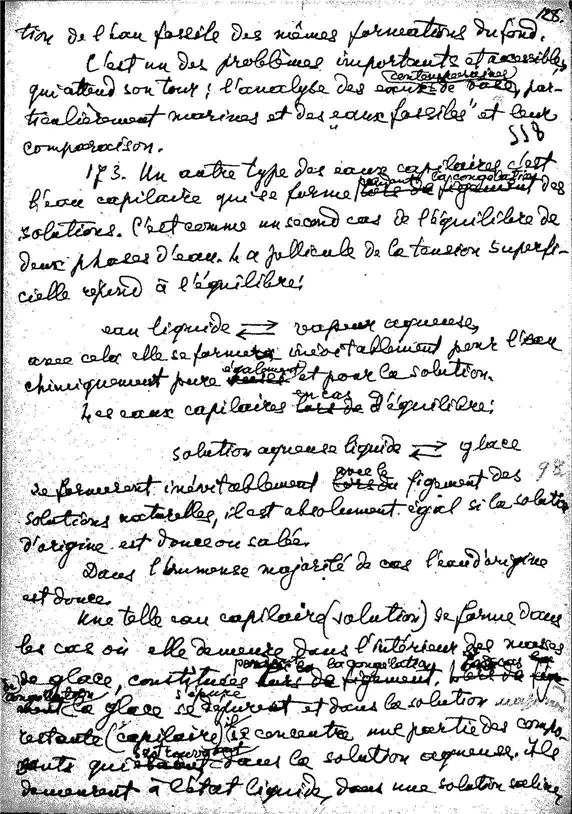 128.
tion de l'eau fossile des mêmes formations du fond.
C'est un des problèmes importants et accessibles,
qui attend son tour: l'analyse des eaux de contemporaines, par-
ticulièrement marines et des "eaux fossiles" et leur
comparaison.
558
173. Un autre type des eaux capilaires c'est
l'eau capilaire qui se forme pendant la congelation des
solutions. C'est comme un second cas de l'équilibre de
deux phases d'eau. La pellicule de la tension superfi-
cielle repond à l'équilibre:
eau liquide ⇄ vapeur aqueuse,
avec cela elle se forme inévitablement pour l'eau
chimiquement pure également et pour la solution.
Les eaux capilaires en cas d'équilibre:
solution aqueuse liquide ⇄ glace
98
se formerent inévitablement avec le figement des
solutions naturelles, il est absolument égal si la solution
d'origine est douce ou salée.
Dans l'immense majorité de cas l'eau d'origine
est douce.
Une telle eau capilaire (solution) se forme dans
les cas où elle demeure dans l'intérieur des masses
de glace, constituées pendant la congelation.
congelation la glace s'épure et dans la solution
restante (capilaire) se concentre une partie des compo-
sants qui se trouvaient dans la solution aqueuse. Ils
demeurent à l'état liquide, dans une solution saline,